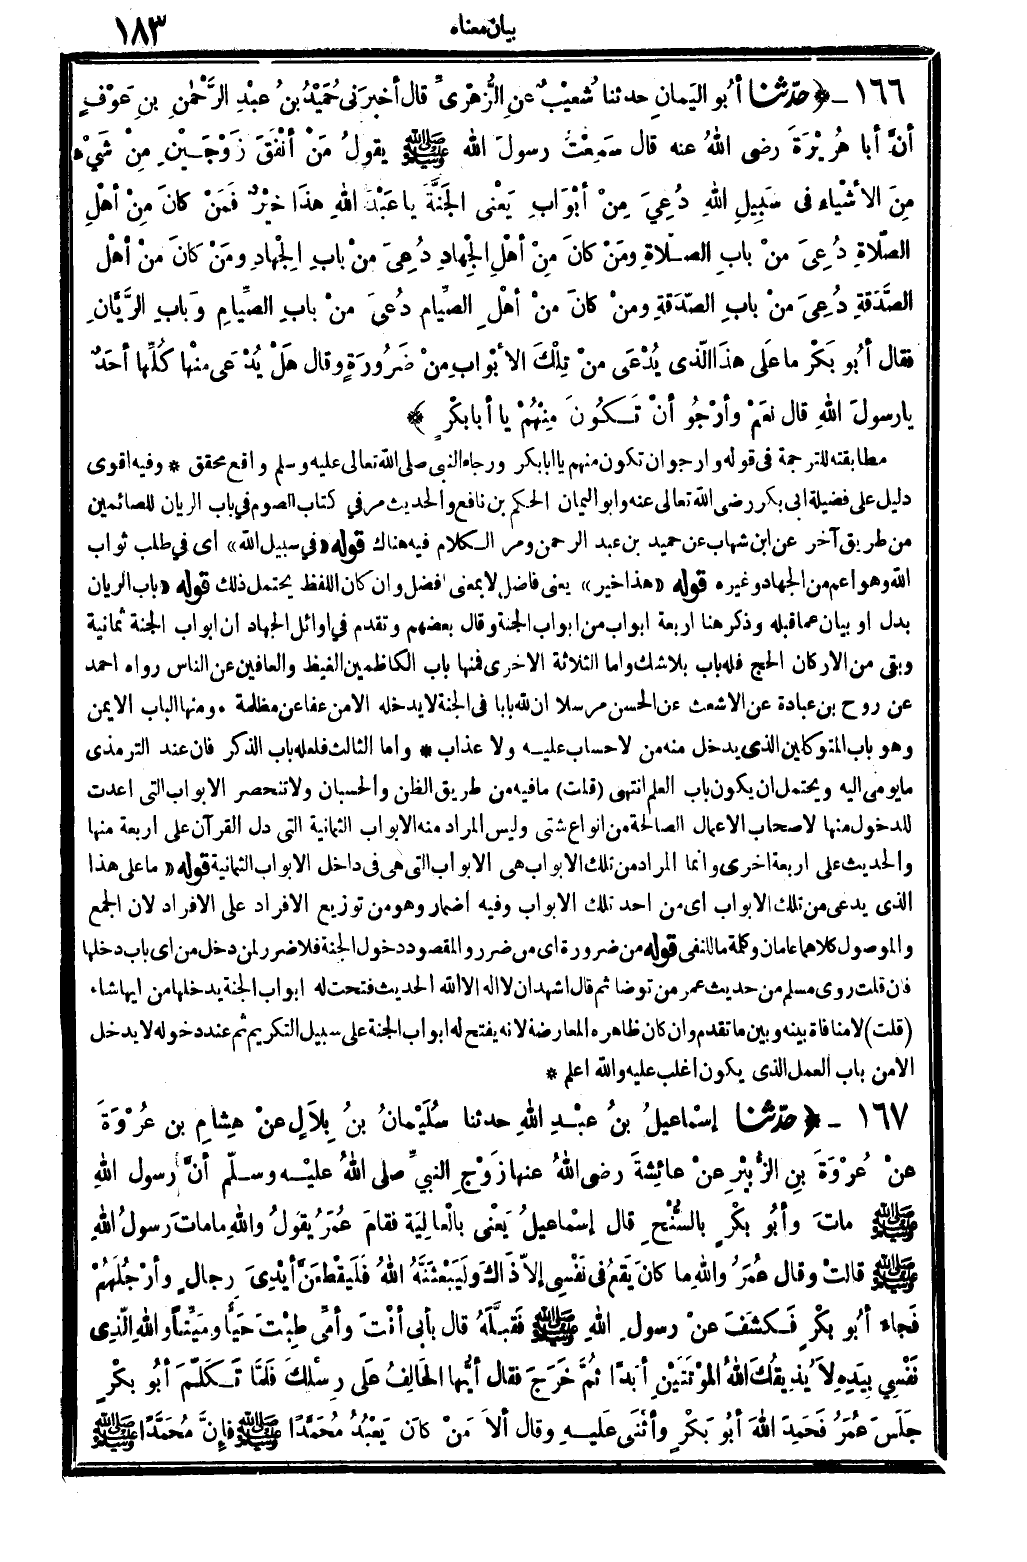 بيان معناه
١٨٣
١٦٦ - ﴿ حدّثنا أبُو اليَمانِ حدثنا شُعيْبٌ عنِ الزُّهْرِيِّ قال أخبرَنى حُمَيْدُ بنُ عبْدِ الرَّحْمٰنِ بنِ عَوْفٍ
أنَّ أبا هُرَيْرَةَ رضى اللهُ عنه قال سَمِعْتُ رسولَ الله ﷺ يقولُ مَنْ أنْفَقَ زَوْجَيْنِ مِنْ شَيْءٍ
مِنَ الأشْياءِ فى سَبِيلِ اللهِ دُعِيَ مِنْ أبْوَابِ يَعْنِى الجَنَّةَ يا عَبْدَ اللهِ هذَا خيْرٌ فَمَنْ كانَ مِنْ أهْلِ
الصّلاةِ دُعِىَ منْ بابِ الصلاةِ ومَنْ كانَ مِنْ أهْلِ الجْهادِ دُعِىَ منْ بابِ الجْهادِ ومَنْ كانَ منْ أهْل
الصَّدَقةِ دُعِىَ منْ بابِ الصّدَقةِ ومنْ كانَ منْ أهْلِ الصيِّام دُعيَ منْ بابِ الصِّيامِ وَبابِ الرَّيَّانِ
فقال أبُو بَكْر ما عَلَى هذَا الّذى يُدْعَى منْ تِلْكَ الأبْوابِ مِنْ ضَرُورَةٍ وقال هَلْ يُدْعَى منْها كُلِّها أحَدٌ
يارسولَ اللهِ قال نعَمْ وأرْجُو أنْ تَكُونَ مِنْهُمْ يا أبا بكْرٍ ﴾ *
مطابقته للترجمة فى قوله وارجو ان تكون منهم يا ابا بكر ورجاء النبى صلى الله تعالى عليه وسلم واقع محقق * وفيه اقوى
دليل على فضيلة ابى بكر رضى الله تعالى عنه وابو اليمان الحكم بن نافع والحديث مر في كتاب الصوم في باب الريان للصائمين
من طريق آخر عن ابن شهاب عن حميد بن عبد الرحمن ومر الكلام فيه هناك قوله «في سبيل الله» اى في طلب ثواب
الله وهو اعم من الجهاد وغيره قوله «هذا خير» يعنى فاضل لا بمعنى افضل وان كان اللفظ يحتمل ذلك قوله «باب الريان
بدل او بيان عما قبله وذكر هنا اربعة ابواب من ابواب الجنة وقال بعضهم وتقدم في اوائل الجهاد ان ابواب الجنة ثمانية
وبقى من الاركان الحج فله باب بلا شك واما الثلاثة الاخرى فمنها باب الكاظمين الغيظ والعافين عن الناس رواه احمد
عن روح بن عبادة عن الاشعث عن الحسن مرسلا ان لله بابا فى الجنة لا يدخله الا من عفا عن مظلمة . ومنها الباب الايمن
وهو باب المتوكلين الذى يدخل منه من لا حساب عليه ولا عذاب * واما الثالث فلعله باب الذكر فان عند الترمذى
ما يومى اليه ويحتمل ان يكون باب العلم انتهى (قلت) ما فيه من طريق الظن والحسبان ولا تنحصر الابواب التى اعدت
للدخول منها لاصحاب الاعمال الصالحة من انواع شتى وليس المراد منه الابواب الثمانية التى دل القرآن على اربعة منها
والحديث على اربعة اخرى وانما المراد من تلك الابواب هى الابواب التى هى فى داخل الابواب الثمانية قوله «ما على هذا
الذى يدعى من تلك الابواب اى من احد تلك الابواب وفيه اضمار وهو من توزيع الافراد على الافراد لان الجمع
والموصول كلاهما عامان وكلمة ما للنفى قوله من ضرورة اى من ضرر والمقصود دخول الجنة فلا ضرر لمن دخل من اى باب دخلها
فان قلت روى مسلم من حديث عمر من توضا ثم قال اشهد ان لا اله الا الله الحديث فتحت له ابواب الجنة يدخلها من ايها شاء
(قلت) لا منافاة بينه وبين ما تقدم وان كان ظاهره المعارضة لانه يفتح له ابواب الجنة على سبيل التكريم ثم عند دخوله لا يدخل
الا من باب العمل الذى يكون اغلب عليه والله اعلم *
١٦٧ - ﴿ حدّثنا إسْماعيلُ بنُ عبْدِ اللهِ حدثنا سُلَيْمانُ بنُ بِلاَلٍ عنْ هِشامِ بنِ عُرْوَةَ
عنْ عُرْوَةَ بنِ الزُّبيْرِ عنْ عائِشةَ رضى اللهُ عنها زَوْجِ النبيِّ صلى اللهُ عليْه وسلّم أنَّ رسول اللهِ
ﷺ ماتَ وأبُو بكْرٍ بالسُّنْحِ قال إسْماعيلُ يَعْنى بالْعالِيَةِ فقامَ عُمَرُ يقولُ واللهِ ما ماتَ رسولُ اللهِ
ﷺ قالتْ وقال عُمَرُ واللهِ ما كانَ يَقعُ فى نَفْسِى إلاّ ذَاكَ ولَيَبْعَثَنَّهُ اللهُ فَلَيقْطَعَنَّ أيْدِىَ رِجالٍ وأرْجُلَهُمْ
فَجاءَ أبُو بكْرٍ فَكَشَفَ عنْ رسولِ اللهِ ﷺ فَقَبَّلَهُ قال بأبى أنْتَ وأمِّى طِبْتَ حَيّاً ومَيِّتاً واللهِ الّذِى
نَفْسِي بِيَدِهِ لاَ يُذِيقُكَ اللهُ المَوْتَتَيْنِ أبَدًا ثُمَّ خَرَجَ فقال أيُّها الحَالِفُ علَى رِسْلِكَ فَلمَّا تَكَلّمَ أبُو بكْرٍ
جلَسَ عُمَرُ فَحَمِدَ اللهَ أبُو بَكْرٍ وأثْنَى عَليْهِ وقال ألاَ مَنْ كانَ يَعْبُدُ مُحَمَّدًا ﷺ فإنَّ مُحَمَّدًا ﷺ